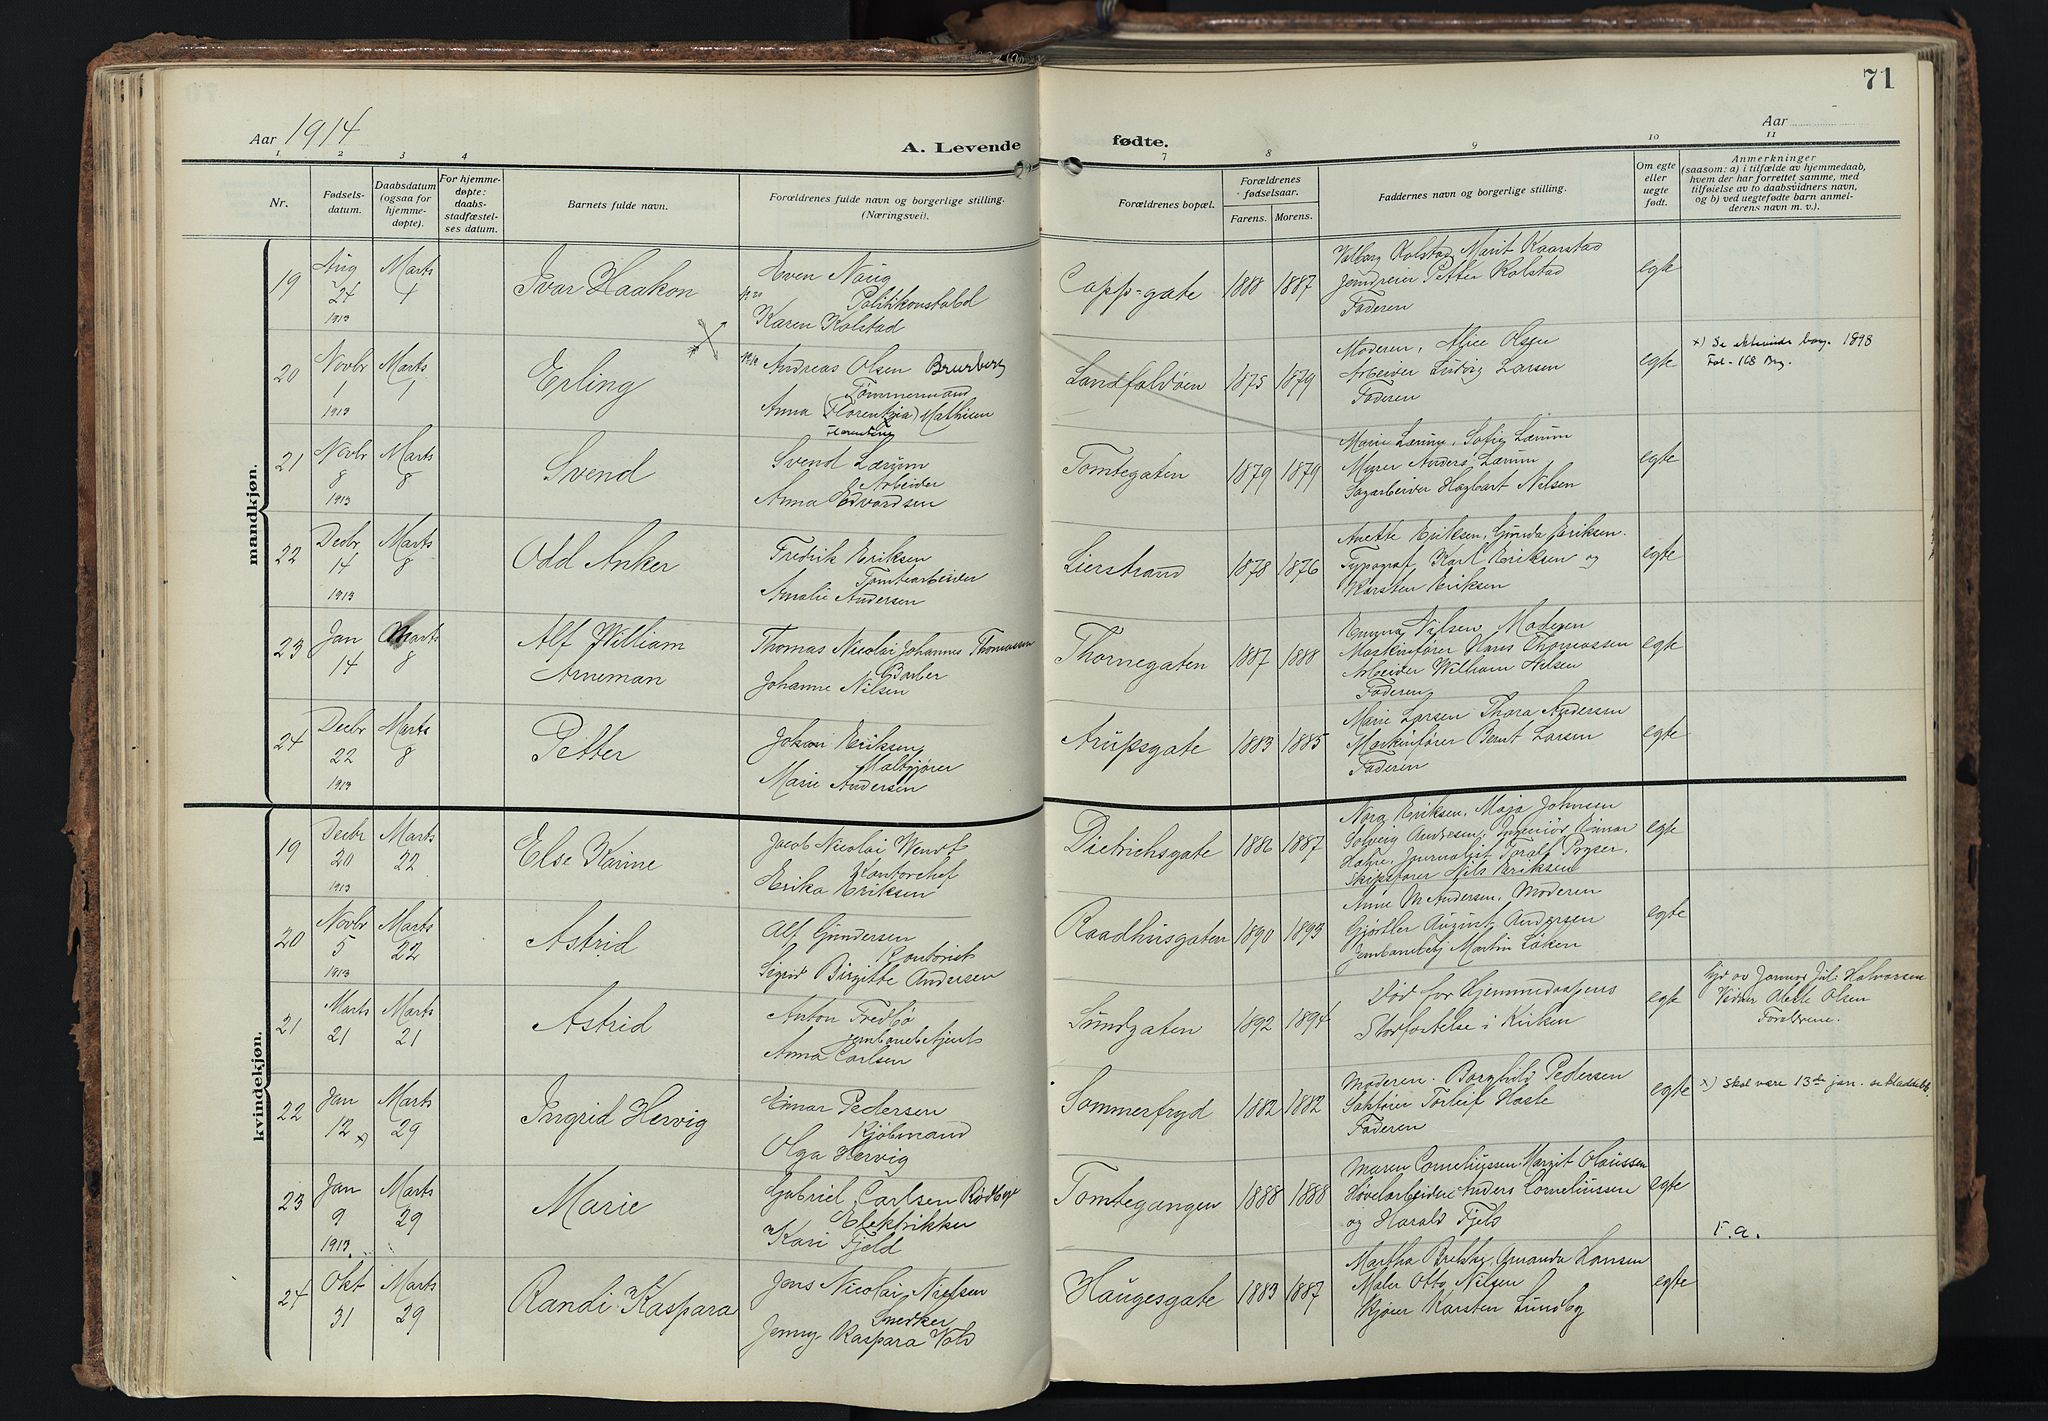 71
Aar 1914
A. Levende
fødte.
Aar
1 2 3 4
7 8 9 10 11
Nr.
Fødsels-
datum.
Daabsdatum
(ogsaa for
hjemme-
døpte).
For hjemme-
døpte:
daabs-
stadfæstel-
ses datum.
Barnets fulde navn.
Forældrenes fulde navn og borgerlige stilling.
(Næringsvei).
Forældrenes bopæl.
Forældrenes
fødselsaar.
Farens. Morens.
Faddernes navn og borgerlige stilling.
Om egte
eller
uegte
født.
Anmerkninger
(saasom: a) i tilfælde av hjemmedaab,
hvem der har forrettet samme, med
tilføielse av to daabsvidners navn,
og b) ved uegtefødte barn anmel-
derens navn m. v.).
mandkjøn.
19
Aug
24
1913
Marts
1
Ivar Haakon
Even Naug
Politikonstabel
Karen Kolstad
Capp-gate
1888 1887
Valborg Kolstad Marit Kaarstad
Petter Kolstad
Faderen
egte
20
Novbr
1
1913
Marts
1
Erling
Andreas Olsen Brurberg
Tømmermand
Anna (Florentzia) Mathisen
Florentine
Landfaldøen
1875 1879
Moderen, Alice Olsen
Arbeider Ludvig Larsen
Faderen
egte
x) Se 1898
Fol. 168
21
Novbr
8
1913
Marts
8
Svend
Svend Lærum
Arbeider
Anna Edvardsen
Tomtegaten
1879 1879
Marie Lærum, Sofie Lærum
Murer Anders Lærum
Sagarbeider Hagbart Nilsen
egte
22
Decbr
14
1913
Marts
8
Odd Anker
Fredrik Eriksen
Tomtearbeider
Amalie Andersen
Lierstrand
1878 1876
Anette Eriksen, Gunda Eriksen.
Typograf Karl Eriksen og
Karsten Eriksen
egte
23
Jan
14
Marts
8
Alf William
Arneman
Thomas Nicolai Johannes Thomassen
Garber
Johanne Nilsen
Thornegaten
1887 1888
Emma Nilsen Moderen
Maskinfører Hans Thomassen
Arbeider William Nilsen
Faderen
egte
24
Decbr
22
1913
Marts
8
Petter
Johan Eriksen
Maltgjører
Marie Andersen
Arupsgate
1883 1885
Marie Larsen Thora Andersen
Maskinfører Bernt Larsen
Faderen
egte
kvindekjøn.
19
Decbr
20
1913
Marts
22
Else Karine
Jacob Nicolai Wendt
Kontorchef
Erika Eriksen
Dietrichsgate
1886 1887
Nora Eriksen, Maja Johnsen
Solveig Andresen, Ingeniør Einar
Journalist Toralf Pryser.
Skibsfører Nils Eriksen
egte
20
Novbr
5
1913
Marts
22
Astrid
Alf Gundersen
Kontorist
Sigrid Birgitte Andersen
Raadhusgaten
1890 1893
Anne M Andersen, Moderen
Gjørtler August Andersen
Jernbanebetj Martin Løken
egte
21
Marts
21
Marts
21
Astrid
Anton Fredbo
Anna Carlsen
Sundgaten
1892 1894
Død før Hjemmedaapens
Storfestelse i Kirken
egte
Halvorsen
Vidner Olsen
Forældrene.
22
Jan
12 x)
Marts
29
Ingrid Hervig
Einar Pedersen
Kjøbmand
Olga Hervig
Sommerfryd
1882 1882
Moderen. Borghild Pedersen
Sakfører Torleif Haste
Faderen
egte
x) skal være 13de jan. se kladdebk.
23
Jan
9
1913
Marts
29
Marie
Gabriel Carlsen Rødbye
Elektrikker
Kari Fjeld
Tomtegangen
1888 1888
Maren Corneliussen. Margit Olaussen
Høvelarbeidere Anders Corneliussen
og Harald Fjels
egte
F.a.
24
Okt
31
Marts
29
Randi Kaspara
Jens Nicolai Nielsen
Snedker
Jenny Kaspara Vold
Haugesgate
1883 1887
Martha Bretske, Amanda Hansen
Maler Otto Nilsen
Karsten Lundby
egte